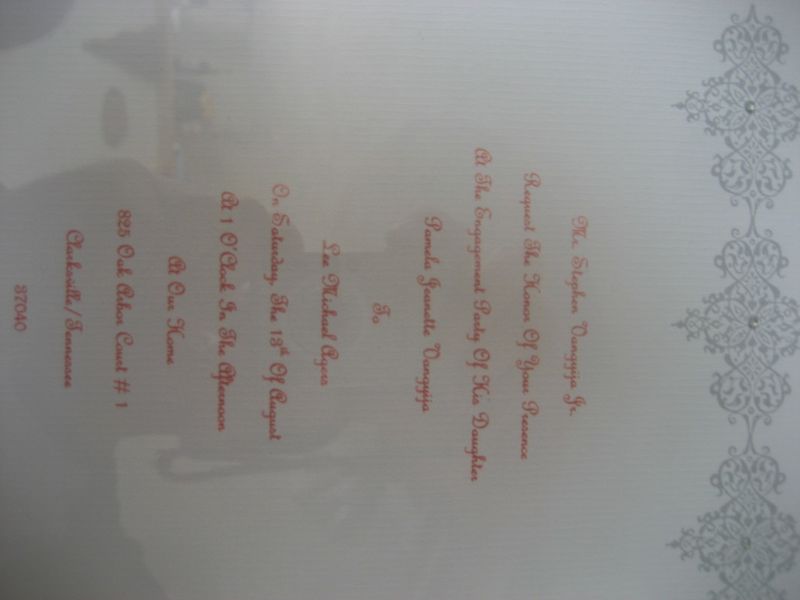 Mr. Stephen Vongyija Jr.
Request The Honor Of Your Presence
At The Engagement Party Of His Daughter
Pamela Jeanette Vongyija
To
Lee Michael Ayers
On Saturday, The 13th Of August
At 1 O'Clock In The Afternoon
At Our Home
825 Oak Arbor Court # 1
Clarksville/Tennessee
37040